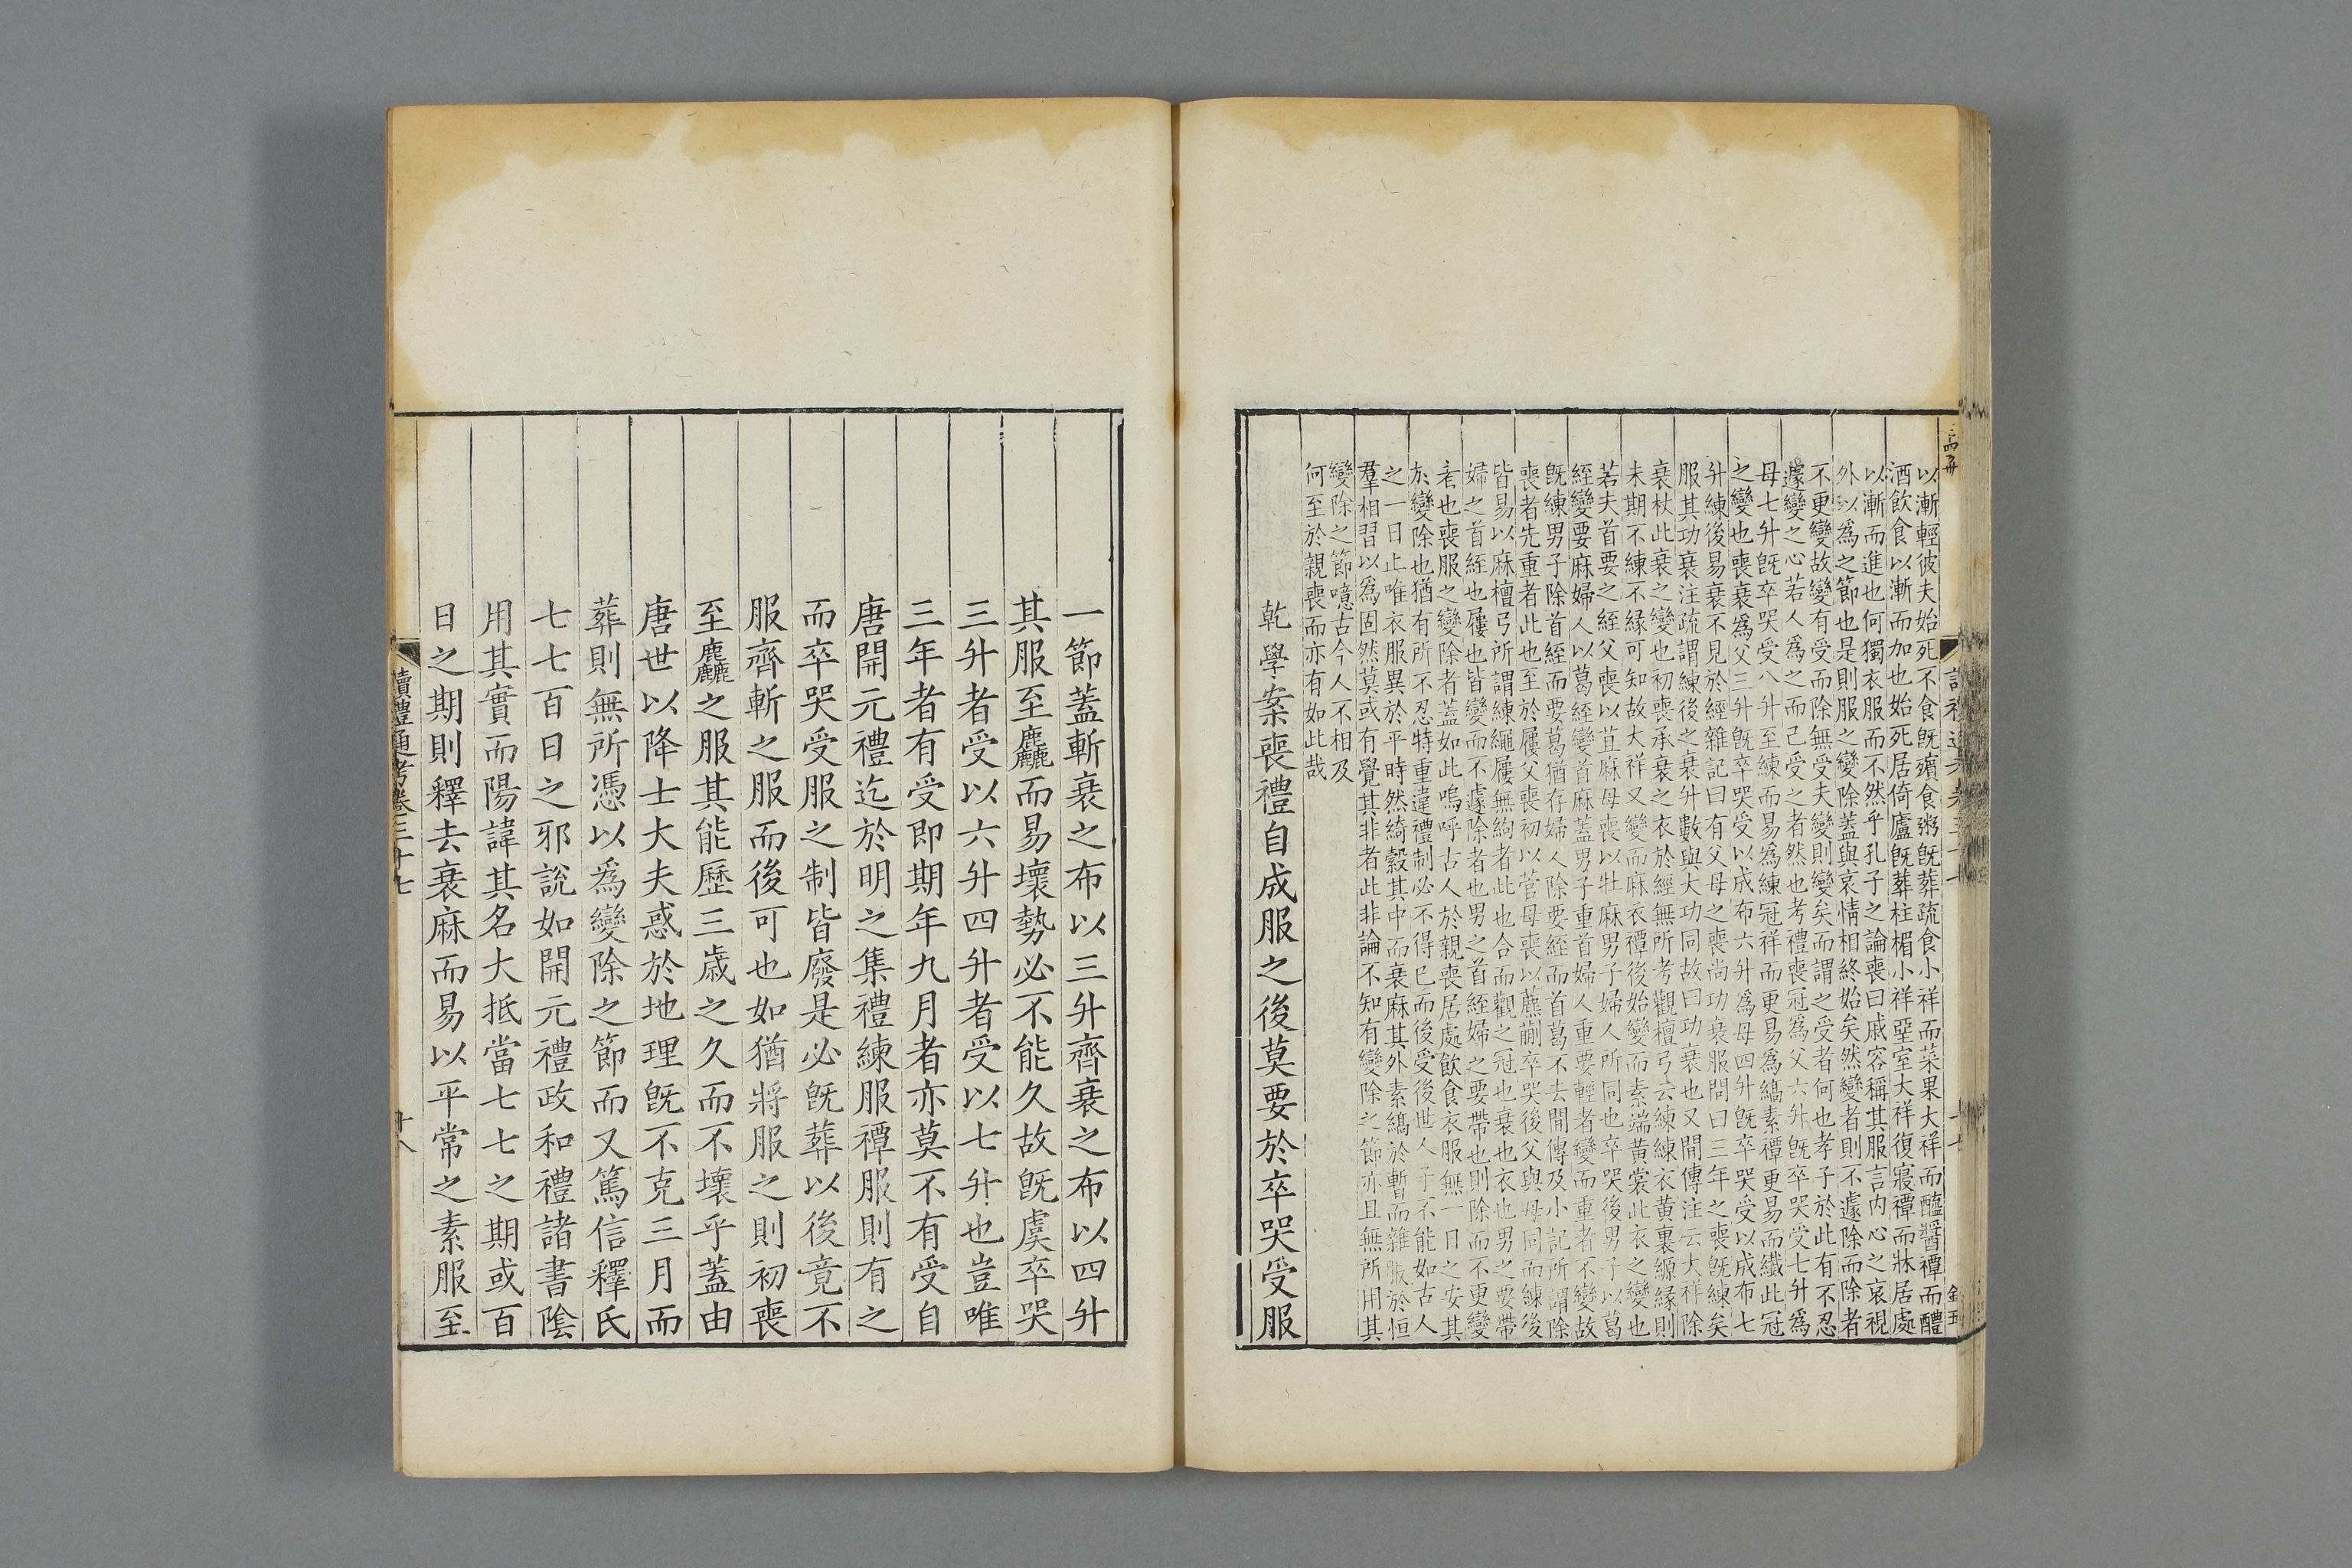 以漸輕彼夫始死不食既殯食粥既葬疏食小祥而菜果大祥而醯醬禫而醴
酒飲食以漸而加也始死居倚廬既葬柱楣小祥堊室大祥復寢禫而牀居處
以漸而進也何獨衣服而不然乎孔子之論喪曰戚容稱其服言内心之哀視
外以爲之節也是則服之變除蓋與哀情相終始矣然變者則不遽除而除者
不更變故變有受而除無受夫變則變矣而謂之受者何也孝子於此有不忍
遽變之心若人爲之而己受之者然也考禮喪冠爲父六升既卒哭受七升爲
母七升既卒哭受八升至練而易爲練冠祥而更易爲縞素禫更易而纖此冠
之變也喪衰爲父三升既卒哭受以成布六升爲母四升既卒哭受以成布七
升練後易衰不見於經雜記曰有父母之喪尚功衰服問曰三年之喪既練矣
服其功衰注疏謂練後之衰升數與大功同故曰功衰也又間傳注云大祥除
衰杖此衰之變也初喪承衰之衣於經無所考觀檀弓云練練衣黄裏縓緣則
未期不練不緣可知故大祥又變而麻衣禫後始變而素端黄裳此衣之變也
若夫首要之絰父喪以苴麻母喪以牡麻男子婦人所同也卒哭後男子以葛
絰變要麻婦人以葛絰變首麻蓋男子重首婦人重要輕者變而重者不變故
既練男子除首絰而要葛猶存婦人除要絰而首葛不去間傳及小記所謂除
喪者先重者此也至於屨父喪初以菅母喪以藨蒯卒哭後父與母同而練後
皆易以麻檀弓所謂練繩屨無絇者此也合而觀之冠也衰也衣也男之要帶
婦之首絰也屨也皆變而不遽除者也男之首絰婦之要帶也則除而不更變
者也喪服之變除者蓋如此嗚呼古人於親喪居處飲食衣服無一日之安其
於變除也猶有所不忍特重違禮制必不得已而後受後世人子不能如古人
之一日止唯衣服異於平時然綺縠其中而衰麻其外素縞於暫而雜服於恒
羣相習以爲固然莫或有覺其非者此非論不知有變除之節亦且無所用其
變除之節噫古今人不相及
何至於親喪而亦有如此哉
乾學案喪禮自成服之後莫要於卒哭受服
一節蓋斬衰之布以三升齊衰之布以四升
其服至麤而易壞勢必不能久故既虞卒哭
三升者受以六升四升者受以七升也豈唯
三年者有受即期年九月者亦莫不有受自
唐開元禮迄於明之集禮練服禫服則有之
而卒哭受服之制皆廢是必既葬以後竟不
服齊斬之服而後可也如猶將服之則初喪
至麤之服其能歷三歲之久而不壞乎蓋由
唐世以降士大夫惑於地理既不克三月而
葬則無所憑以爲變除之節而又篤信釋氏
七七百日之邪說如開元禮政和禮諸書陰
用其實而陽諱其名大抵當七七之期或百
日之期則釋去衰麻而易以平常之素服至
讀禮通考卷三十七
十八